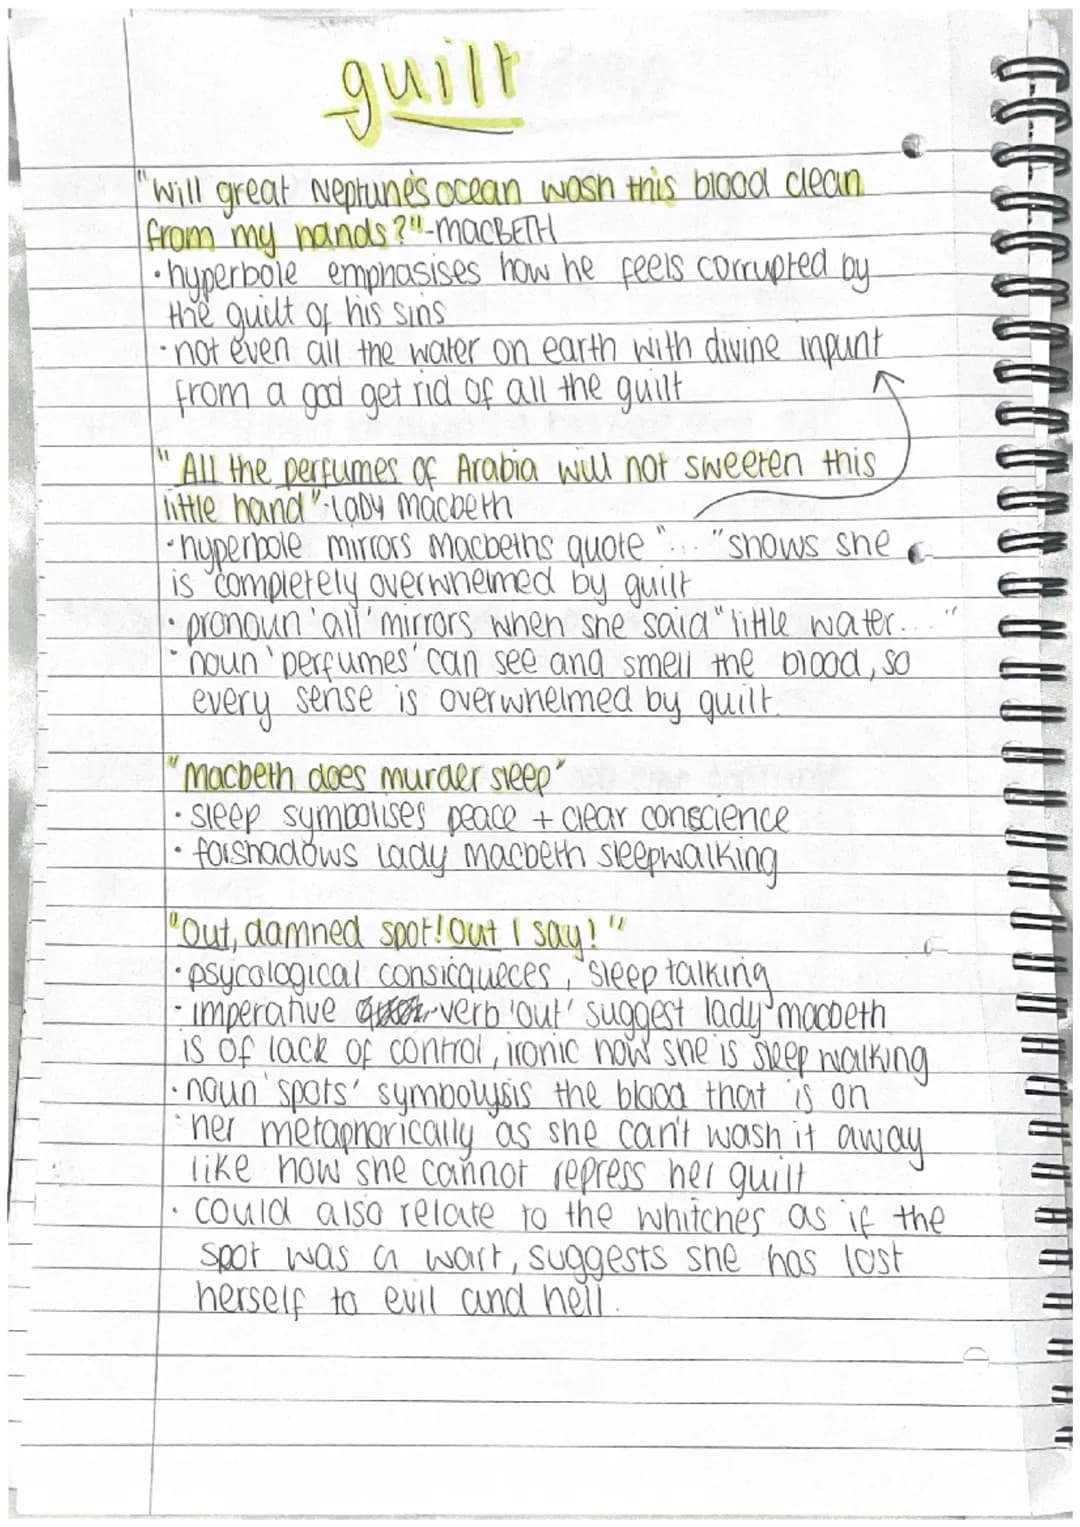 guilt
"Will great Neptune's ocean wash this blood clean
from my hands?"-MACBETH
• hyperbole emphasises how he feels corrupted by
the guilt of his sins
• not even all the water on earth with divine inpunt
from a god get rid of all the guilt
" All the perfumes of Arabia will not sweeten this
little hand"-LADY Macbeth
• hyperbole mirrors Macbeths quote "... "shows she
is completely overwhelmed by guilt
• pronoun 'all' mirrors when she said "little water... "
• noun 'perfumes' can see and smell the blood, so
every sense is overwhelmed by guilt.
"Macbeth does murder sleep"
• sleep symbolises peace + clear conscience
• forshadows lady macbeth sleepwalking
"Out, damned spot! Out I say!"
• psycological consicqueces, sleep talking
• imperative verb 'out' suggest lady macbeth
is of lack of control, ironic how she is sleep walking
• noun 'spots' symbolysis the blood that is on
her metaphorically as she can't wash it away
like how she cannot repress her guilt
• could also relate to the whitches as if the
spot was a wart, suggests she has lost
herself to evil and hell.